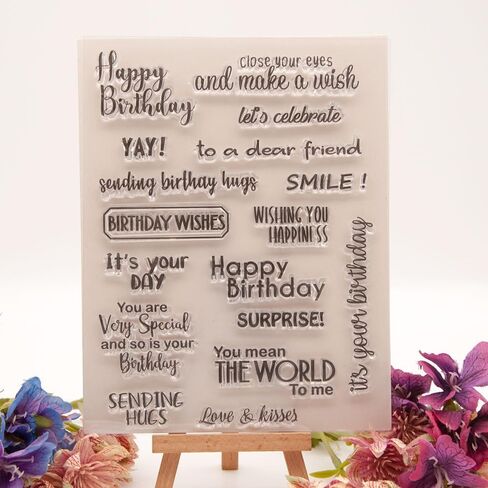 Happy
Birthday
close your eyes
and make a wish
let's celebrate
YAY!
to a dear friend
sending birthay hugs
SMILE !
BIRTHDAY WISHES
WISHING YOU
HAPPINESS
it's your
DAY
Happy
Birthday
it's your birthday
You are
Very Special
and so is your
Birthday
SURPRISE!
You mean
THE WORLD
To me
SENDING
HUGS
Love & kisses